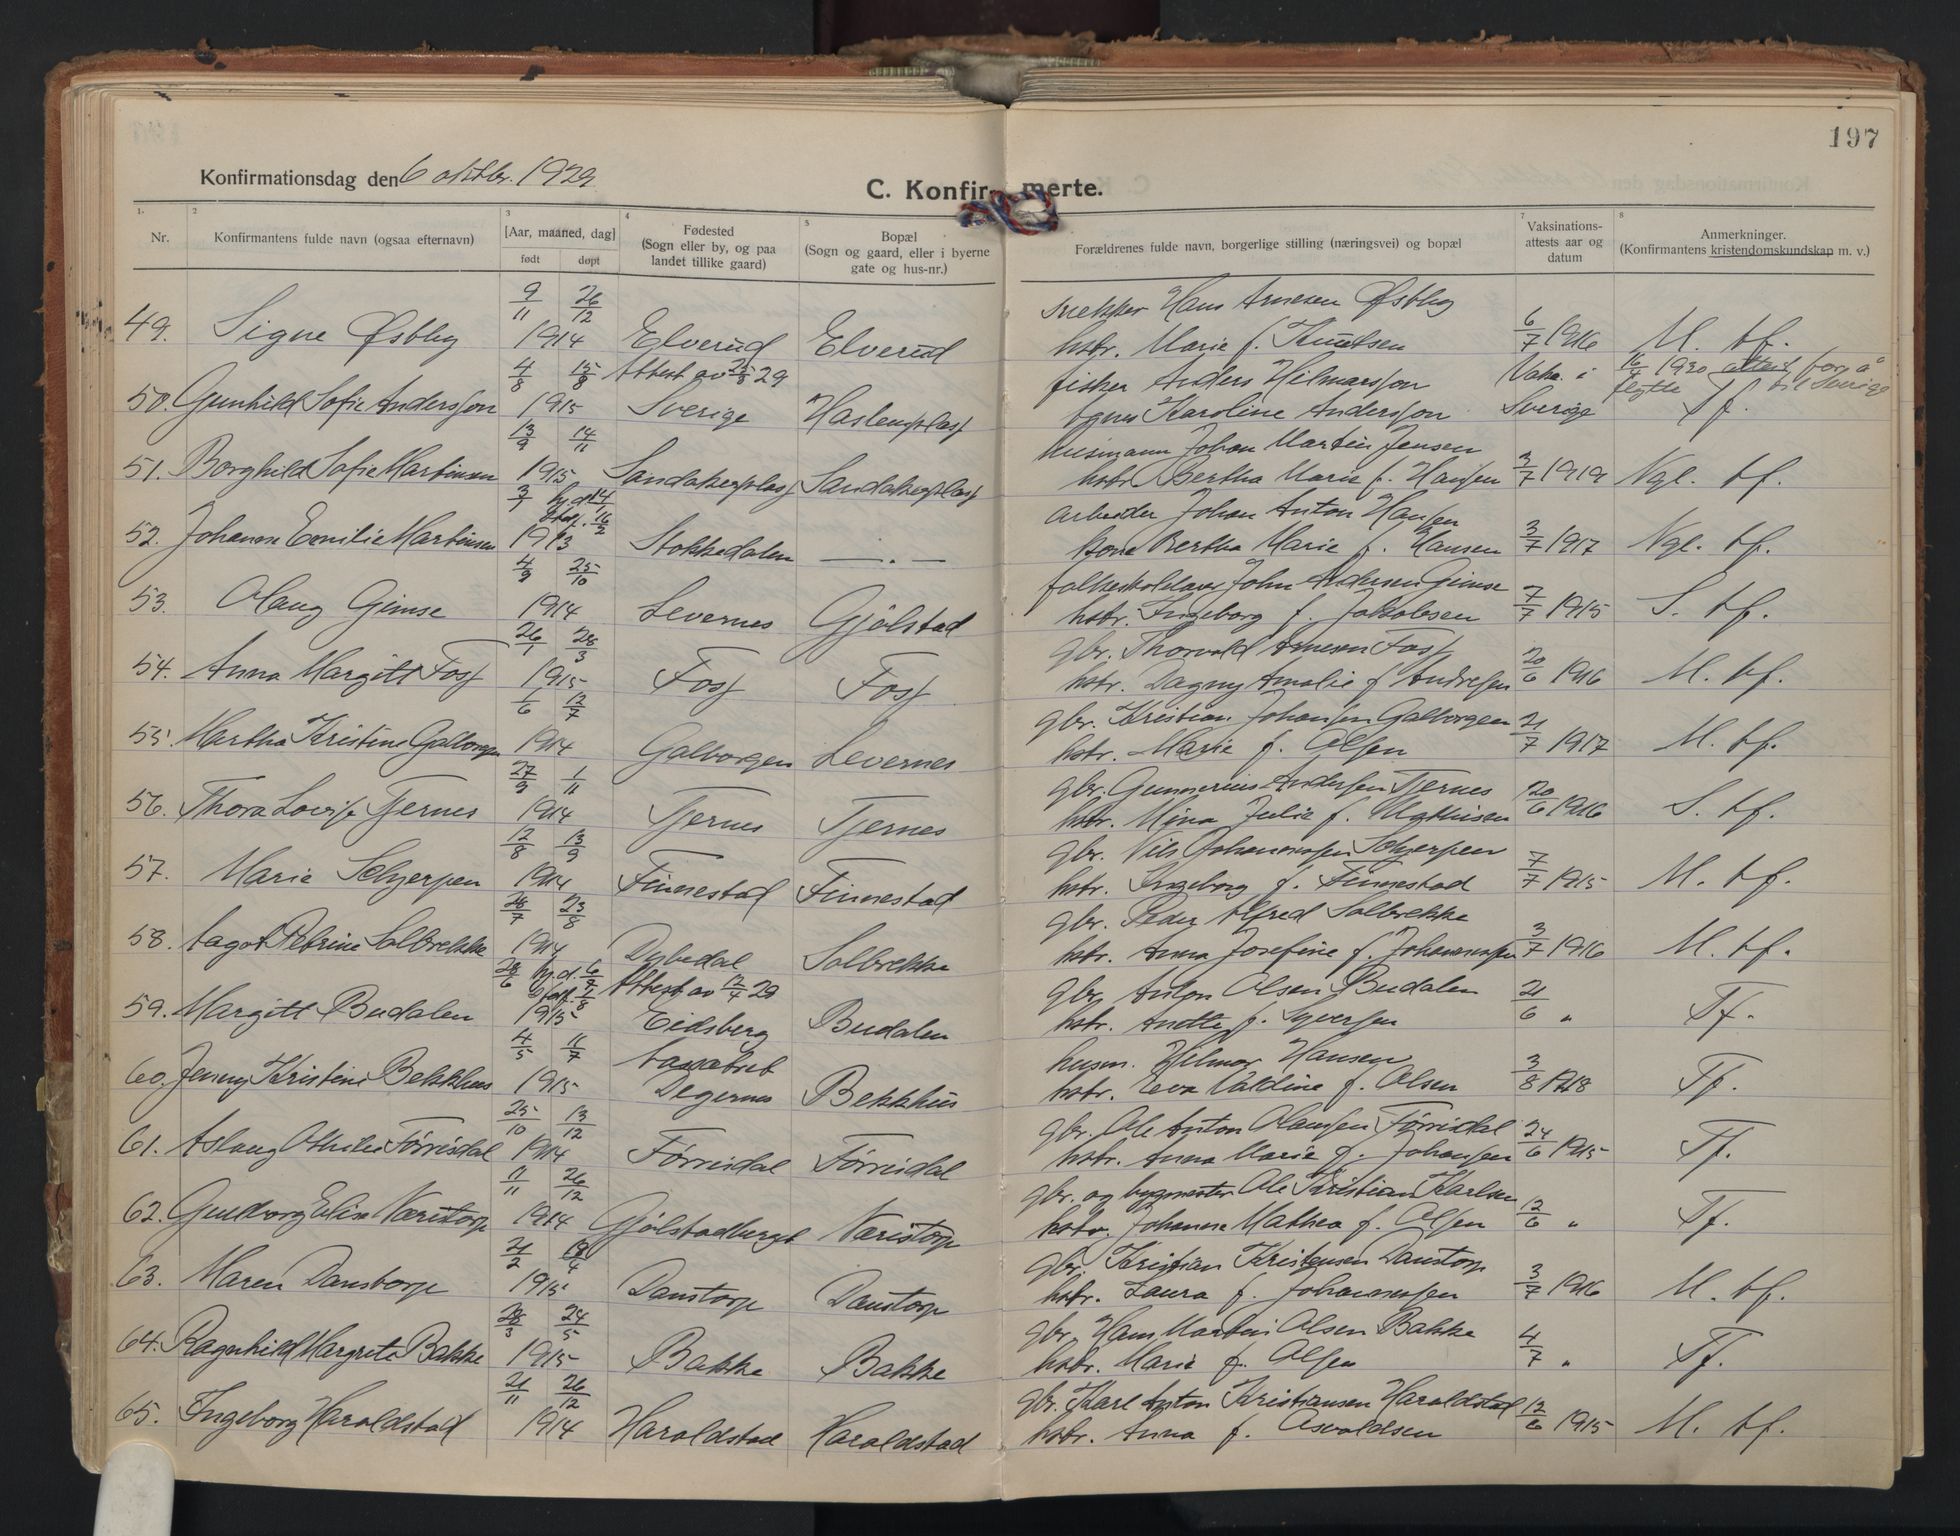 197
Konfirmationsdag den 6 oktbr. 1929
C. Konfirmerte.
1. Nr.
2 Konfirmantens fulde navn (ogsaa efternavn)
3 [Aar, maaned, dag] født døpt
4 Fødested (Sogn eller by, og paa landet tillike gaard)
5 Bopæl (Sogn og gaard, eller i byerne gate og hus-nr.)
Forældrenes fulde navn, borgerlige stilling (næringsvei) og bopæl
7 Vaksinations-attests aar og datum
8 Anmerkninger. (Konfirmantens kristendomskundskap m. v.)
9/11 26/12 snekker Hans Arnesen Østby
49. Signe Østby 1914 Elverud Elverud hstr. Marie f. Knutsen 6/7 1916 M. tf.
4/8 15/8 Attest av 25/8 29 fisker Anders Hilmarsson Vaks. i 16/4 1930 attest for å
50. Gunhild Sofie Andersson 1915 Sverige Haslemplass Karoline Andersson Sverige flytte til Sverige Tf.
13/9 14/11 husmann Johan Martin Jensen
51. Borghild Sofie Martinsen 1915 Sandakerplass Sandakerplass hstr. Bertha Marie f. Hansen 3/7 1919 Ngl. tf.
3/7 hj.d. 14/7 stad. 16/2 arbeider Johan Anton Hansen
52. Johanne Emilie Martinsen 1913 Stokkedalen — . — kone Bertha Marie f. Hansen 3/7 1917 Ngl. tf.
4/9 25/10 John Andersen Gimse
53. Olaug Gimse 1914 Levernes Gjølstad hstr. Ingeborg f. Jakobsen 7/7 1915 S. tf.
26/1 28/3 gbr. Thorvald Arnesen Foss
54. Anna Margitt Foss 1915 Foss Foss hstr. Dagny Amalie f Andresen 20/6 1916 M. tf.
1/6 12/7 gbr. Kristian Johansen Galborgen
55. Martha Kristine Galborgen 1914 Galborgen Levernes hstr. Marie f. Olsen 21/7 1917 M. tf.
27/9 1/11 gbr. Gunnerius Andersen Tjernes
56. Thora Lovise Tjernes 1914 Tjernes Tjernes hstr. Mina Julie f. Mathisen 20/6 1916 S. tf.
12/8 13/9 gbr. Nils Johannessen Schjerpen
57. Marie Schjerpen 1914 Finnestad Finnestad hstr. Ingeborg f. Finnestad 7/7 1915 M. tf.
28/7 23/8 gbr. Peder Alfred Solbrekke
58. Aagot Petrine Solbrekke 1914 Dybedal Solbrekke hstr. Anna Josefine f. Johannessen 3/7 1916 M. tf.
28/6 hj.d. 6/7 stad. 1/8 Attest av 12/4 29 gbr. Anton Olsen Budalen
59. Margitt Budalen 1915 Eidsberg Budalen hstr. f. Syversen 21/6 " Tf.
4/5 11/7 husm. Hilmar Hansen
60. Jenny Kristine Bekkhus 1915 Degernes Bekkhus hstr. Eva Valdine f. Olsen 3/8 1918 Tf.
25/10 13/12 gbr. Ole Anton Olaussen Førrisdal
61. Aslaug Othilie Førrisdal 1914 Førrisdal Førrisdal hstr. Anna Marie f. Johansen 24/6 1915 Tf.
11/11 26/12 gbr. og bygmester Ole Kristian Karlsen
62. Gudborg Elise Næristorp 1914 Gjølstadberget Næristorp hstr. Johanne Mathea f. Olsen 12/6 " Tf.
21/2 18/4 gbr. Kristian Kristensen Danstorp
63. Maren Danstorp 1915 Danstorp Danstorp hstr. Laura f. Johannessen 3/7 1916 M. tf.
28/3 24/5 gbr. Hans Martin Olsen Bakke
64. Ragnhild Margrete Bakke 1915 Bakke Bakke hstr. Marie f. Olsen 4/7 " Tf.
21/11 26/12 gbr. Karl Anton Kristiansen Haraldstad
65. Ingeborg Haraldstad 1914 Haraldstad Haraldstad hstr. Anna f. Asvaldsen 12/6 1915 M. tf.